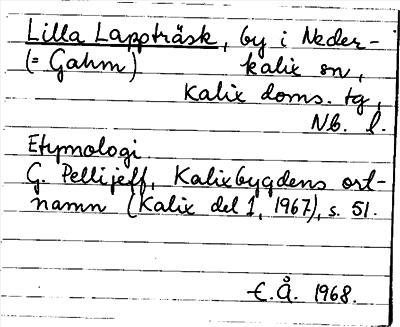 Lilla Lappträsk, by i Neder-
(= Gahm) kalix sn,
Kalix doms. tg,
Nb. l.
Etymologi
G. Pellijeff, Kalixbygdens ort-
namn (Kalix del 1, 1967), s. 51.
E.Å. 1968.